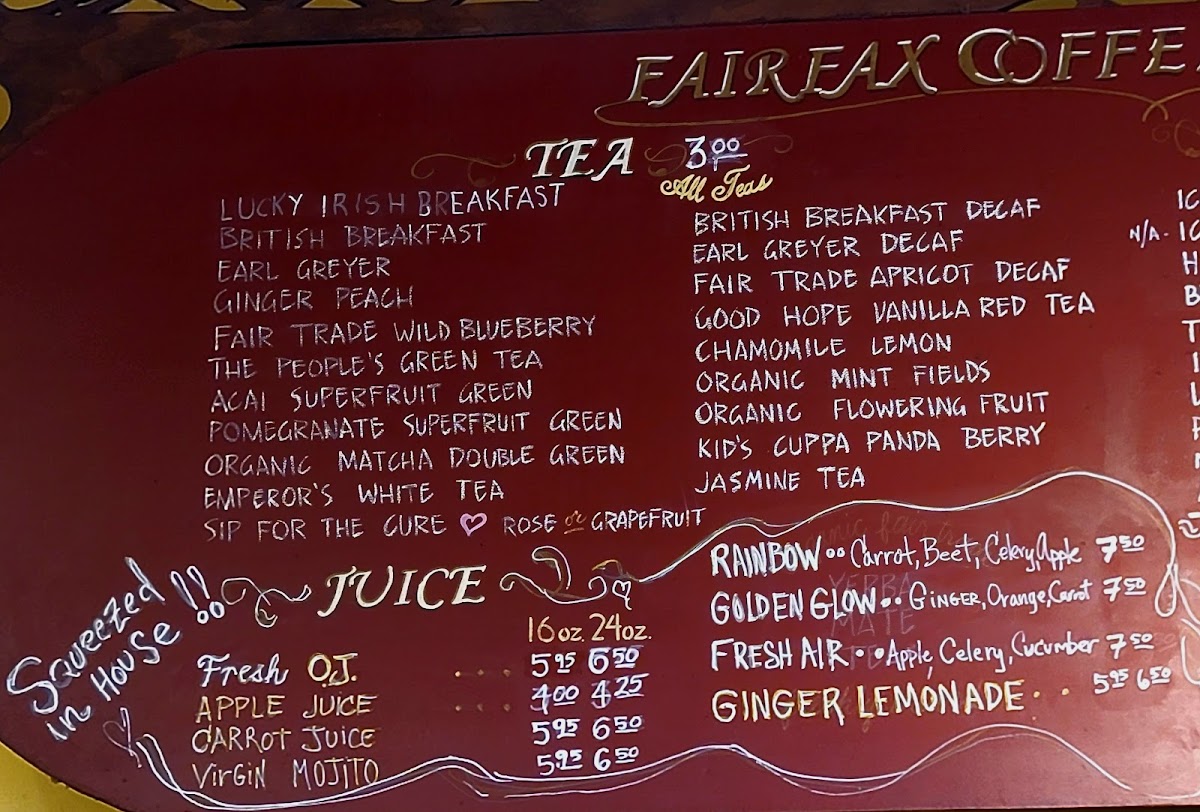 FAIRFAX COFFE
TEA 3.00
All Teas
LUCKY IRISH BREAKFAST
BRITISH BREAKFAST
EARL GREYER
GINGER PEACH
FAIR TRADE WILD BLUEBERRY
THE PEOPLE'S GREEN TEA
ACAI SUPERFRUIT GREEN
POMEGRANATE SUPERFRUIT GREEN
ORGANIC MATCHA DOUBLE GREEN
EMPEROR'S WHITE TEA
SIP FOR THE CURE ♡ ROSE or GRAPEFRUIT
BRITISH BREAKFAST DECAF
EARL GREYER DECAF
FAIR TRADE APRICOT DECAF
GOOD HOPE VANILLA RED TEA
CHAMOMILE LEMON
ORGANIC MINT FIELDS
ORGANIC FLOWERING FRUIT
KID'S CUPPA PANDA BERRY
JASMINE TEA
IC
N/A - IC
H
B
T
Squeezed
in House !!
JUICE
16oz. 24oz.
Fresh O.J. .... 5.95 6.50
APPLE JUICE .... 4.00 4.25
CARROT JUICE 5.95 6.50
VIRGIN MOJITO 5.95 6.50
RAINBOW •• Carrot, Beet, Celery, Apple 7.50
GOLDEN GLOW •• GINGER, Orange, Carrot 7.50
FRESH AIR •• Apple, Celery, Cucumber 7.50
GINGER LEMONADE .. 5.95 6.50
YERBA
MATE